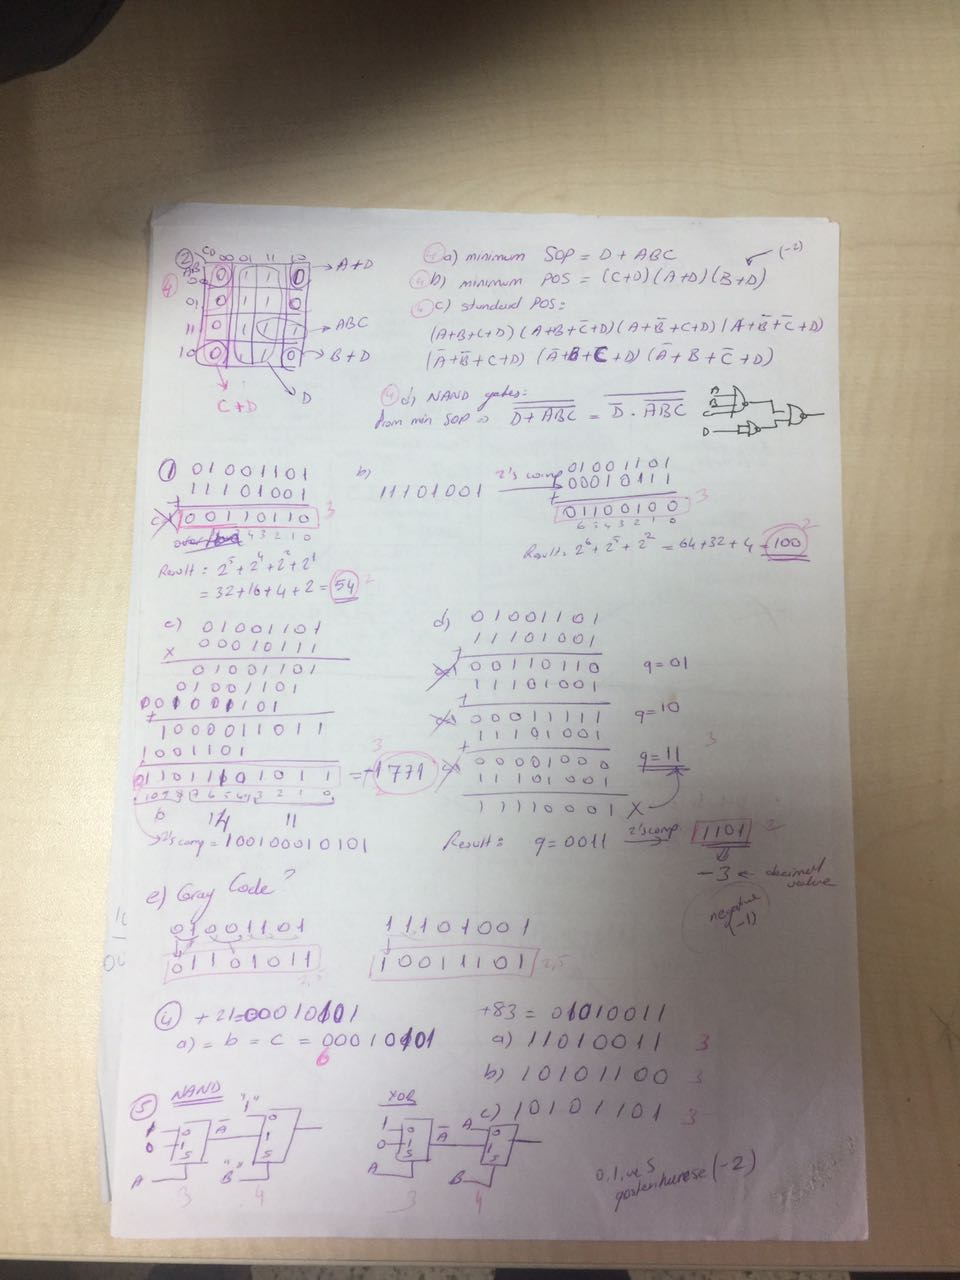 ②
CD 00 01 11 10
AB
00 0 1 1 0 → A+D
01 0 1 1 0
11 0 1 1 1 → ABC
10 0 1 1 0 → B+D
C+D
D
4
4 a) minimum SOP = D + ABC
(-2)
4 b) minimum POS = (C+D)(A+D)(B+D)
4 c) standard POS:
(A+B+C+D)(A+B+C̅+D)(A+B̅+C+D)(A+B̅+C̅+D)
(A̅+B̅+C+D)(A̅+B+C+D)(A̅+B+C̅+D)
4 d) NAND gates:
from min SOP ⇒ D+ABC = D̅ . ABC
A
B
C
D
① 01001101
11101001
+
00110110 3
5 4 3 2 1 0
Result = 2^5 + 2^4 + 2^2 + 2^1
= 32+16+4+2 = 54 2
b)
11101001 2's comp
01001101
00010111
+
01100100 3
6 5 4 3 2 1 0
Result: 2^6 + 2^5 + 2^2 = 64+32+4 = 100 2
c) 01001101
x 00010111
01001101
01001101
+
1000011011
1001101
11011101011 = -1771 3
10 9 8 7 6 5 4 3 2 1 0
11
2's comp = 100100010101
d) 01001101
11101001
+
00110110 q=01
11101001
+
00011111 q=10
11101001
+
00001000 q=11 3
11101001
11110001 X
Result: q=0011 2's comp → 1101 2
-3 ← decimal value
negative (-1)
e) Gray Code?
01001101 11101001
01101011 2,5 10011101 2,5
④ +21=00010101 +83 = 01010011
a) = b = c = 00010101 a) 11010011 3
6
b) 10101100 3
c) 10101101 3
⑤ NAND
1 0
0 1
S
A
A̅
"1"
0
1
S
B
3 4
XOR
1 0
0 1
S
A
A̅
A
0
1
S
B
3 4
0,1, ve S
gosterilmezse (-2)